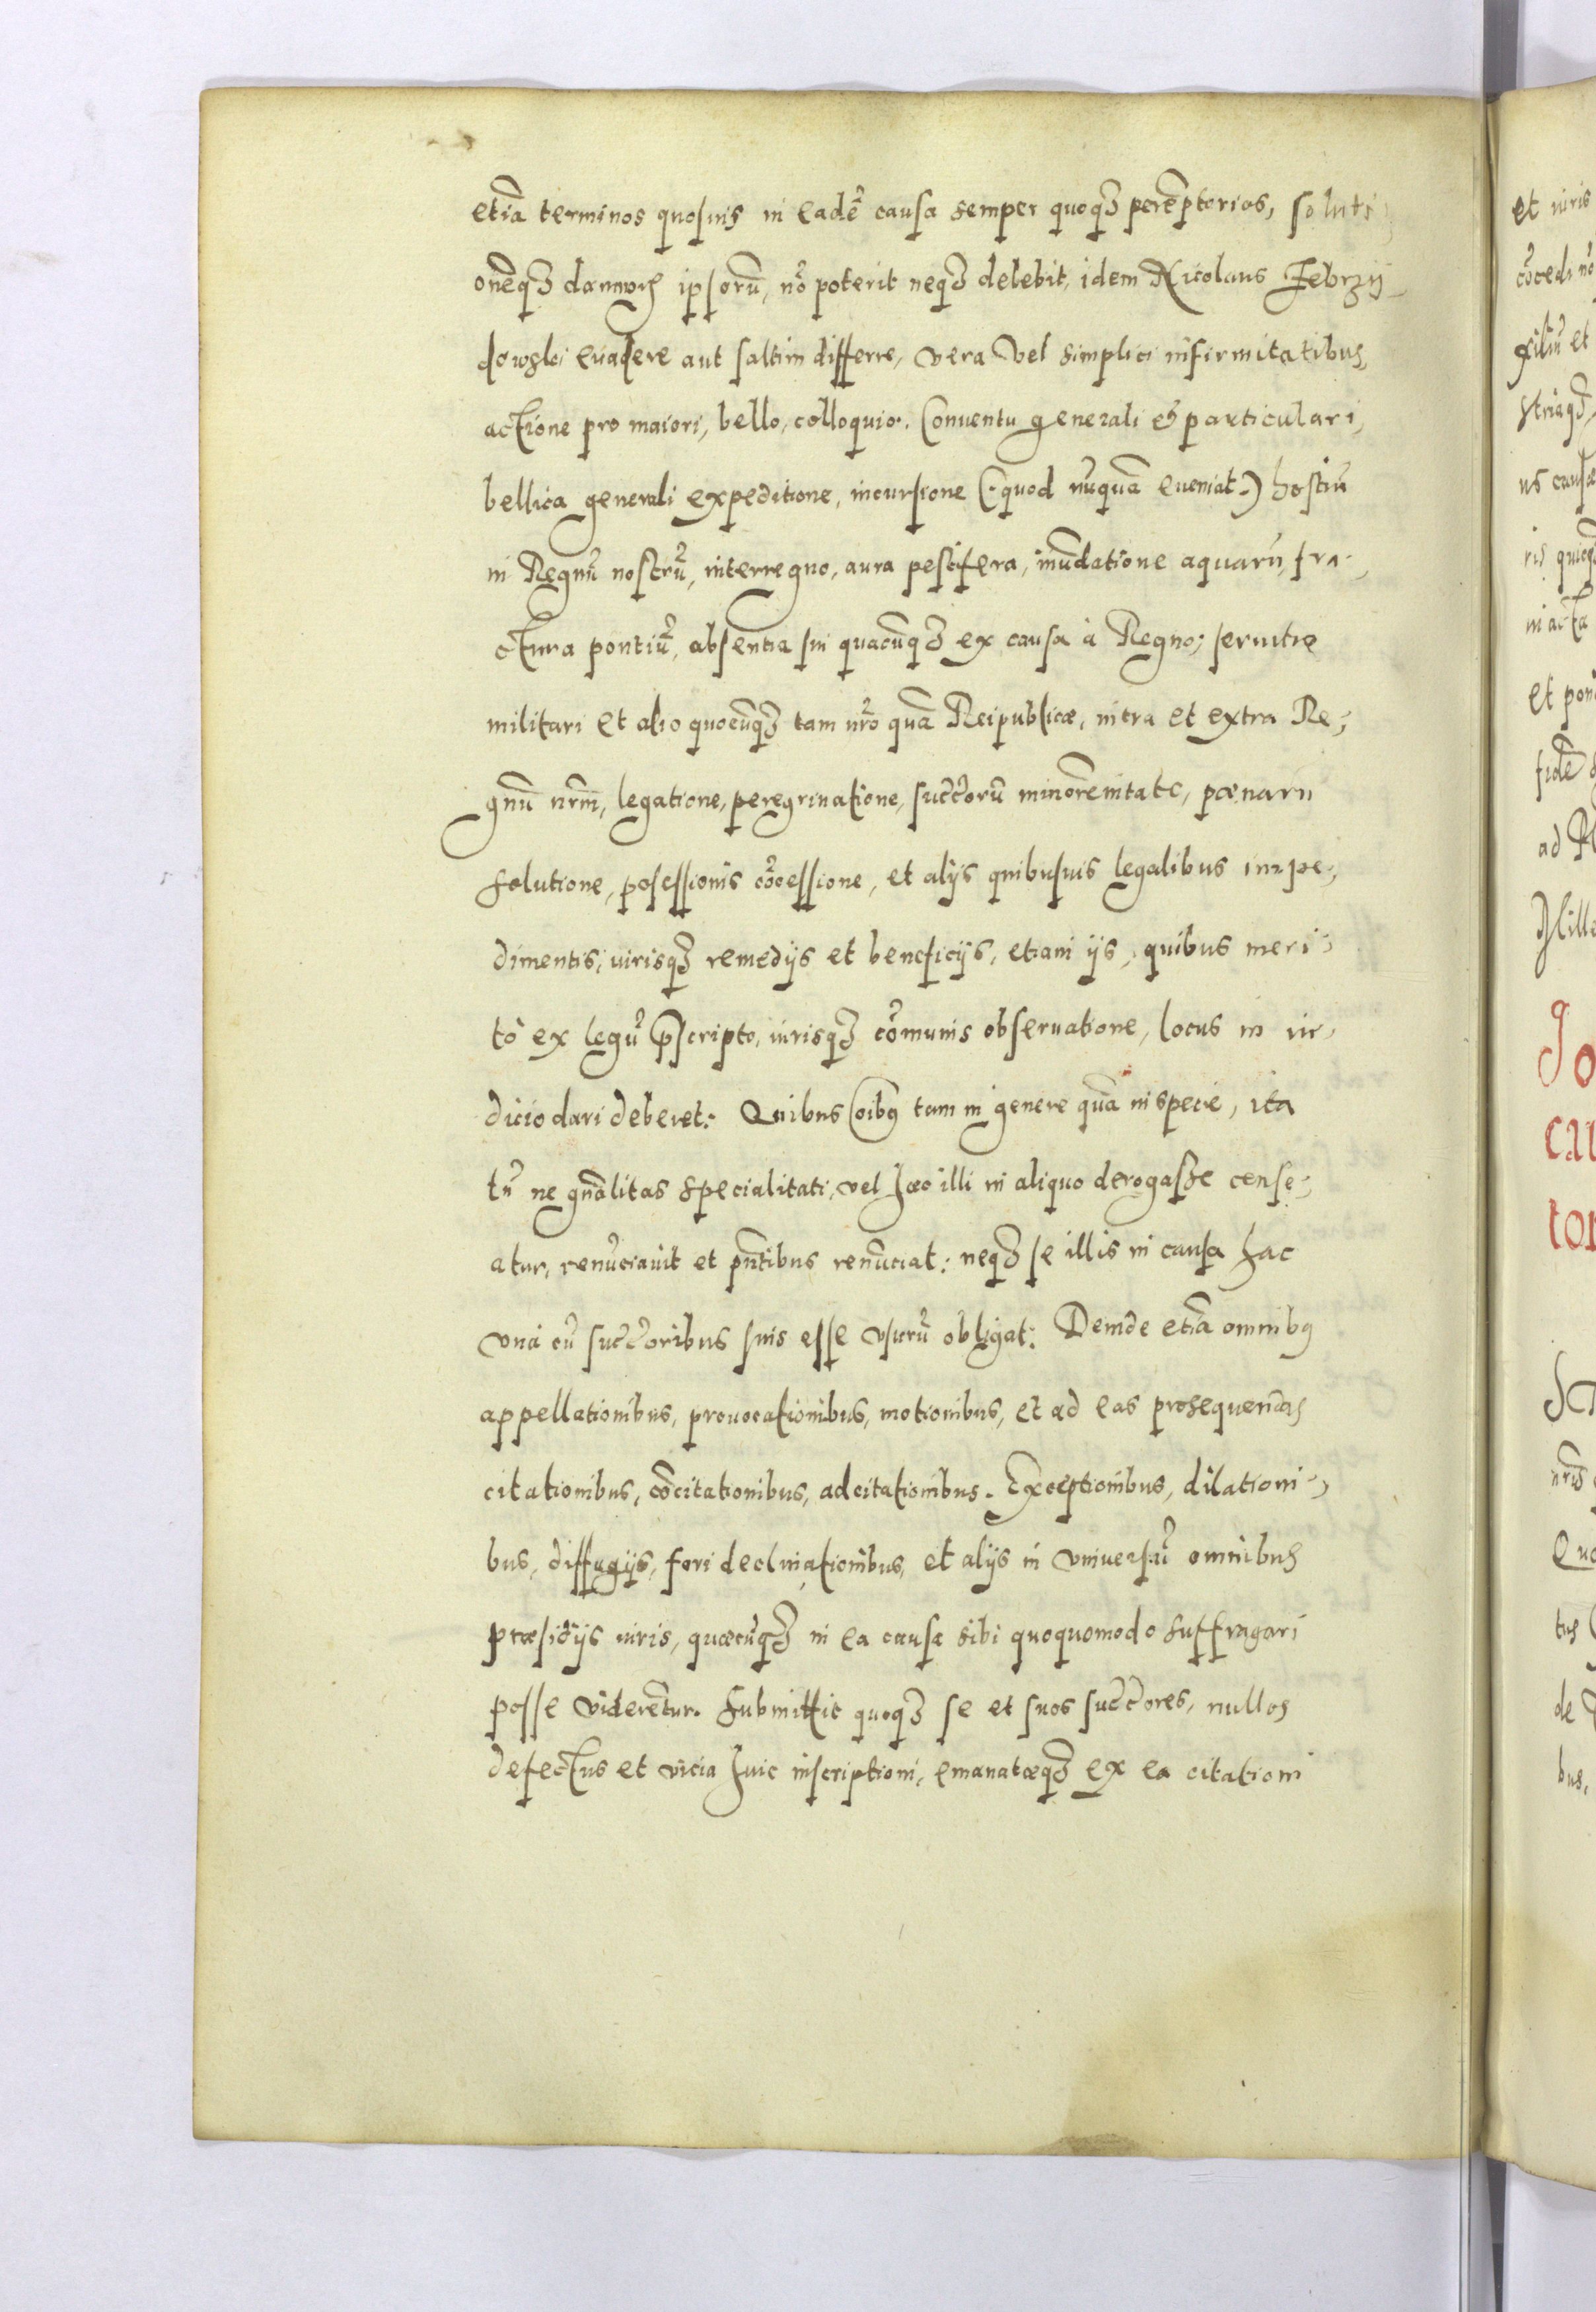 etiã terminos quosuis in eadẽ causa semper quoqꝫ perẽptorios, soluti-
onẽqꝫ damnorꝫ ipsorũ, nõ poterit neqꝫ debebit, idem Nicolaus Febrzy-
dowski euadere aut saltim differre, vera vel simplici infirmitatibus,
actione pro maiori, bello, colloquio. Conuentu generali et particulari,
bellica generali expeditione, incursione (quod nũquã eueniat) hostiũ
in Regnũ nostrũ, interregno, aura pestifera, inũdatione aquarũ, fra-
ctura pontiũ, absentia sui quacũqꝫ ex causa à Regno; seruitio
militari et alio quocũqꝫ tam nrõ quã Reipublicæ, intra et extra Re-
gnũ nrm̃, legatione, peregrinatione, succ̃orũ minorẽnitate, pœnarũ
solutione, possessionis cõcessione, et alijs quibusuis legalibus impe-
dimentis, iurisqꝫ remedijs et beneficijs, etiam ijs, quibus meri-
tò ex legũ p̃scripto, iurisqꝫ cõmunis obseruatione, locus in iu-
dicio dari deberet: Quibus oĩbꝰ tam in genere quã in specie, ita
tñ ne gñalitas specialitati, vel hæc illi in aliquo derogasse cense-
atur, renũciauit et pñtibus renũciat: neqꝫ se illis in causa hac
vnà cũ succ̃oribus suis esse vsurũ obligat: Deinde etiã omnibꝰ
appellationibus, prouocationibus, motionibus, et ad eas prosequendas
citationibus, cõcitationibus, adcitationibus. Exceptionibus, dilationi-
bus, diffugijs, fori declinationibus, et alijs in vniuersũ omnibus
præsidijs iuris, quæcũqꝫ in ea causa sibi quoquomodo suffragari
posse viderẽtur. Submittit quoqꝫ se et suos succ̃ores, nullos
defectus et vicia huic inscriptioni, emanatæqꝫ ex ea citationi